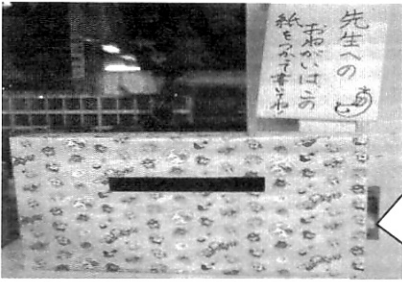 先生への
おねがいはこの
紙をつかって書いてね